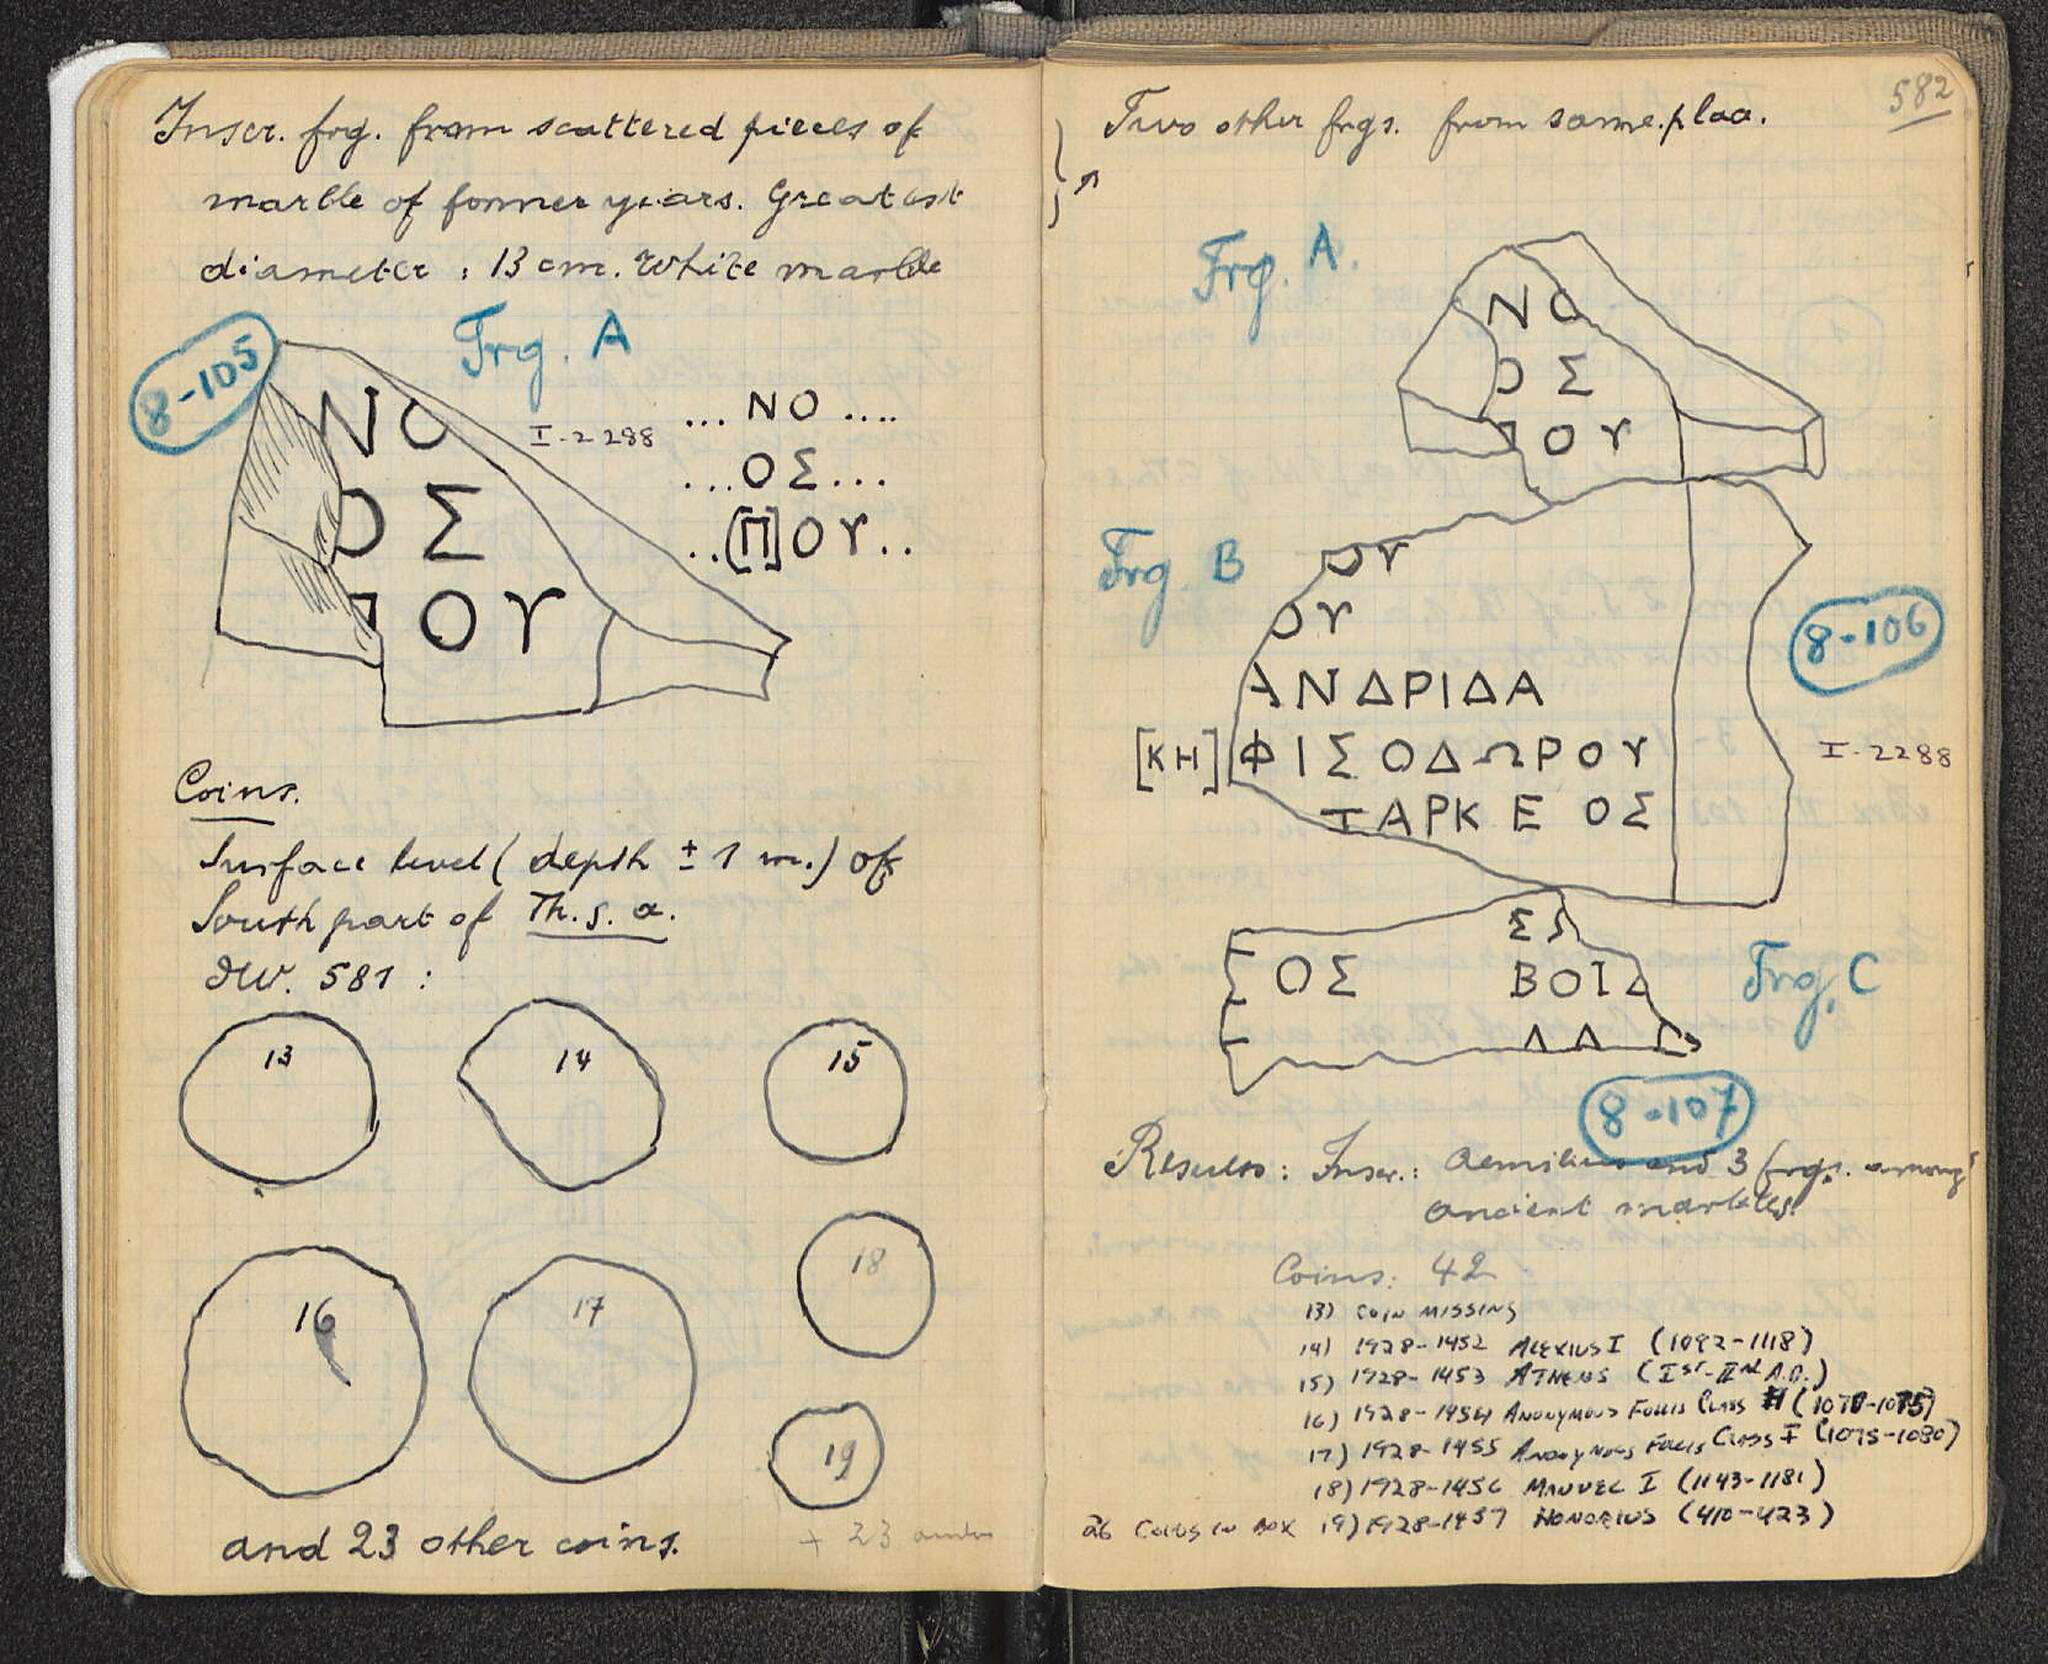 Inscr. frg. from scattered pieces of
marble of former years. Greatest
diameter : 13 cm. White marble
8-105
Frg. A
I-2288
ΝΟ
ΟΣ
ΠΟΥ
... ΝΟ ....
...ΟΣ...
..[Π]ΟΥ..
Coins.
Surface level ( depth ± 1 m.) of
South part of Th. s. a.
NW. 581 :
13
14
15
16
17
18
19
and 23 other coins.
+ 23
582
Two other frgs. from same place.
Frg. A.
ΝΟ
ΟΣ
ΠΟΥ
Frg. B
ΟΥ
ΟΥ
ΑΝΔΡΙΔΑ
[ΚΗ]ΦΙΣΟΔΩΡΟΥ
ΤΑΡΚΕ ΟΣ
8-106
I-2288
ΕΣ
ΟΣ ΒΟΙ
Frg. C
8-107
Results : Inscr.: Aemilius and 3 frgs. among
ancient marbles.
Coins: 42
13) COIN MISSING
14) 1928-1452 ALEXIUS I (1092-1118)
15) 1928-1453 ATHENS (Ist-IInd A.D.)
16) 1928-1454 ANONYMOUS FOLLIS CLASS H (1070-1075)
17) 1928-1455 ANONYMOUS FOLLIS CLASS I (1075-1080)
18) 1928-1456 MANUEL I (1143-1181)
26 COINS IN BOX 19) 1928-1457 HONORIUS (410-423)